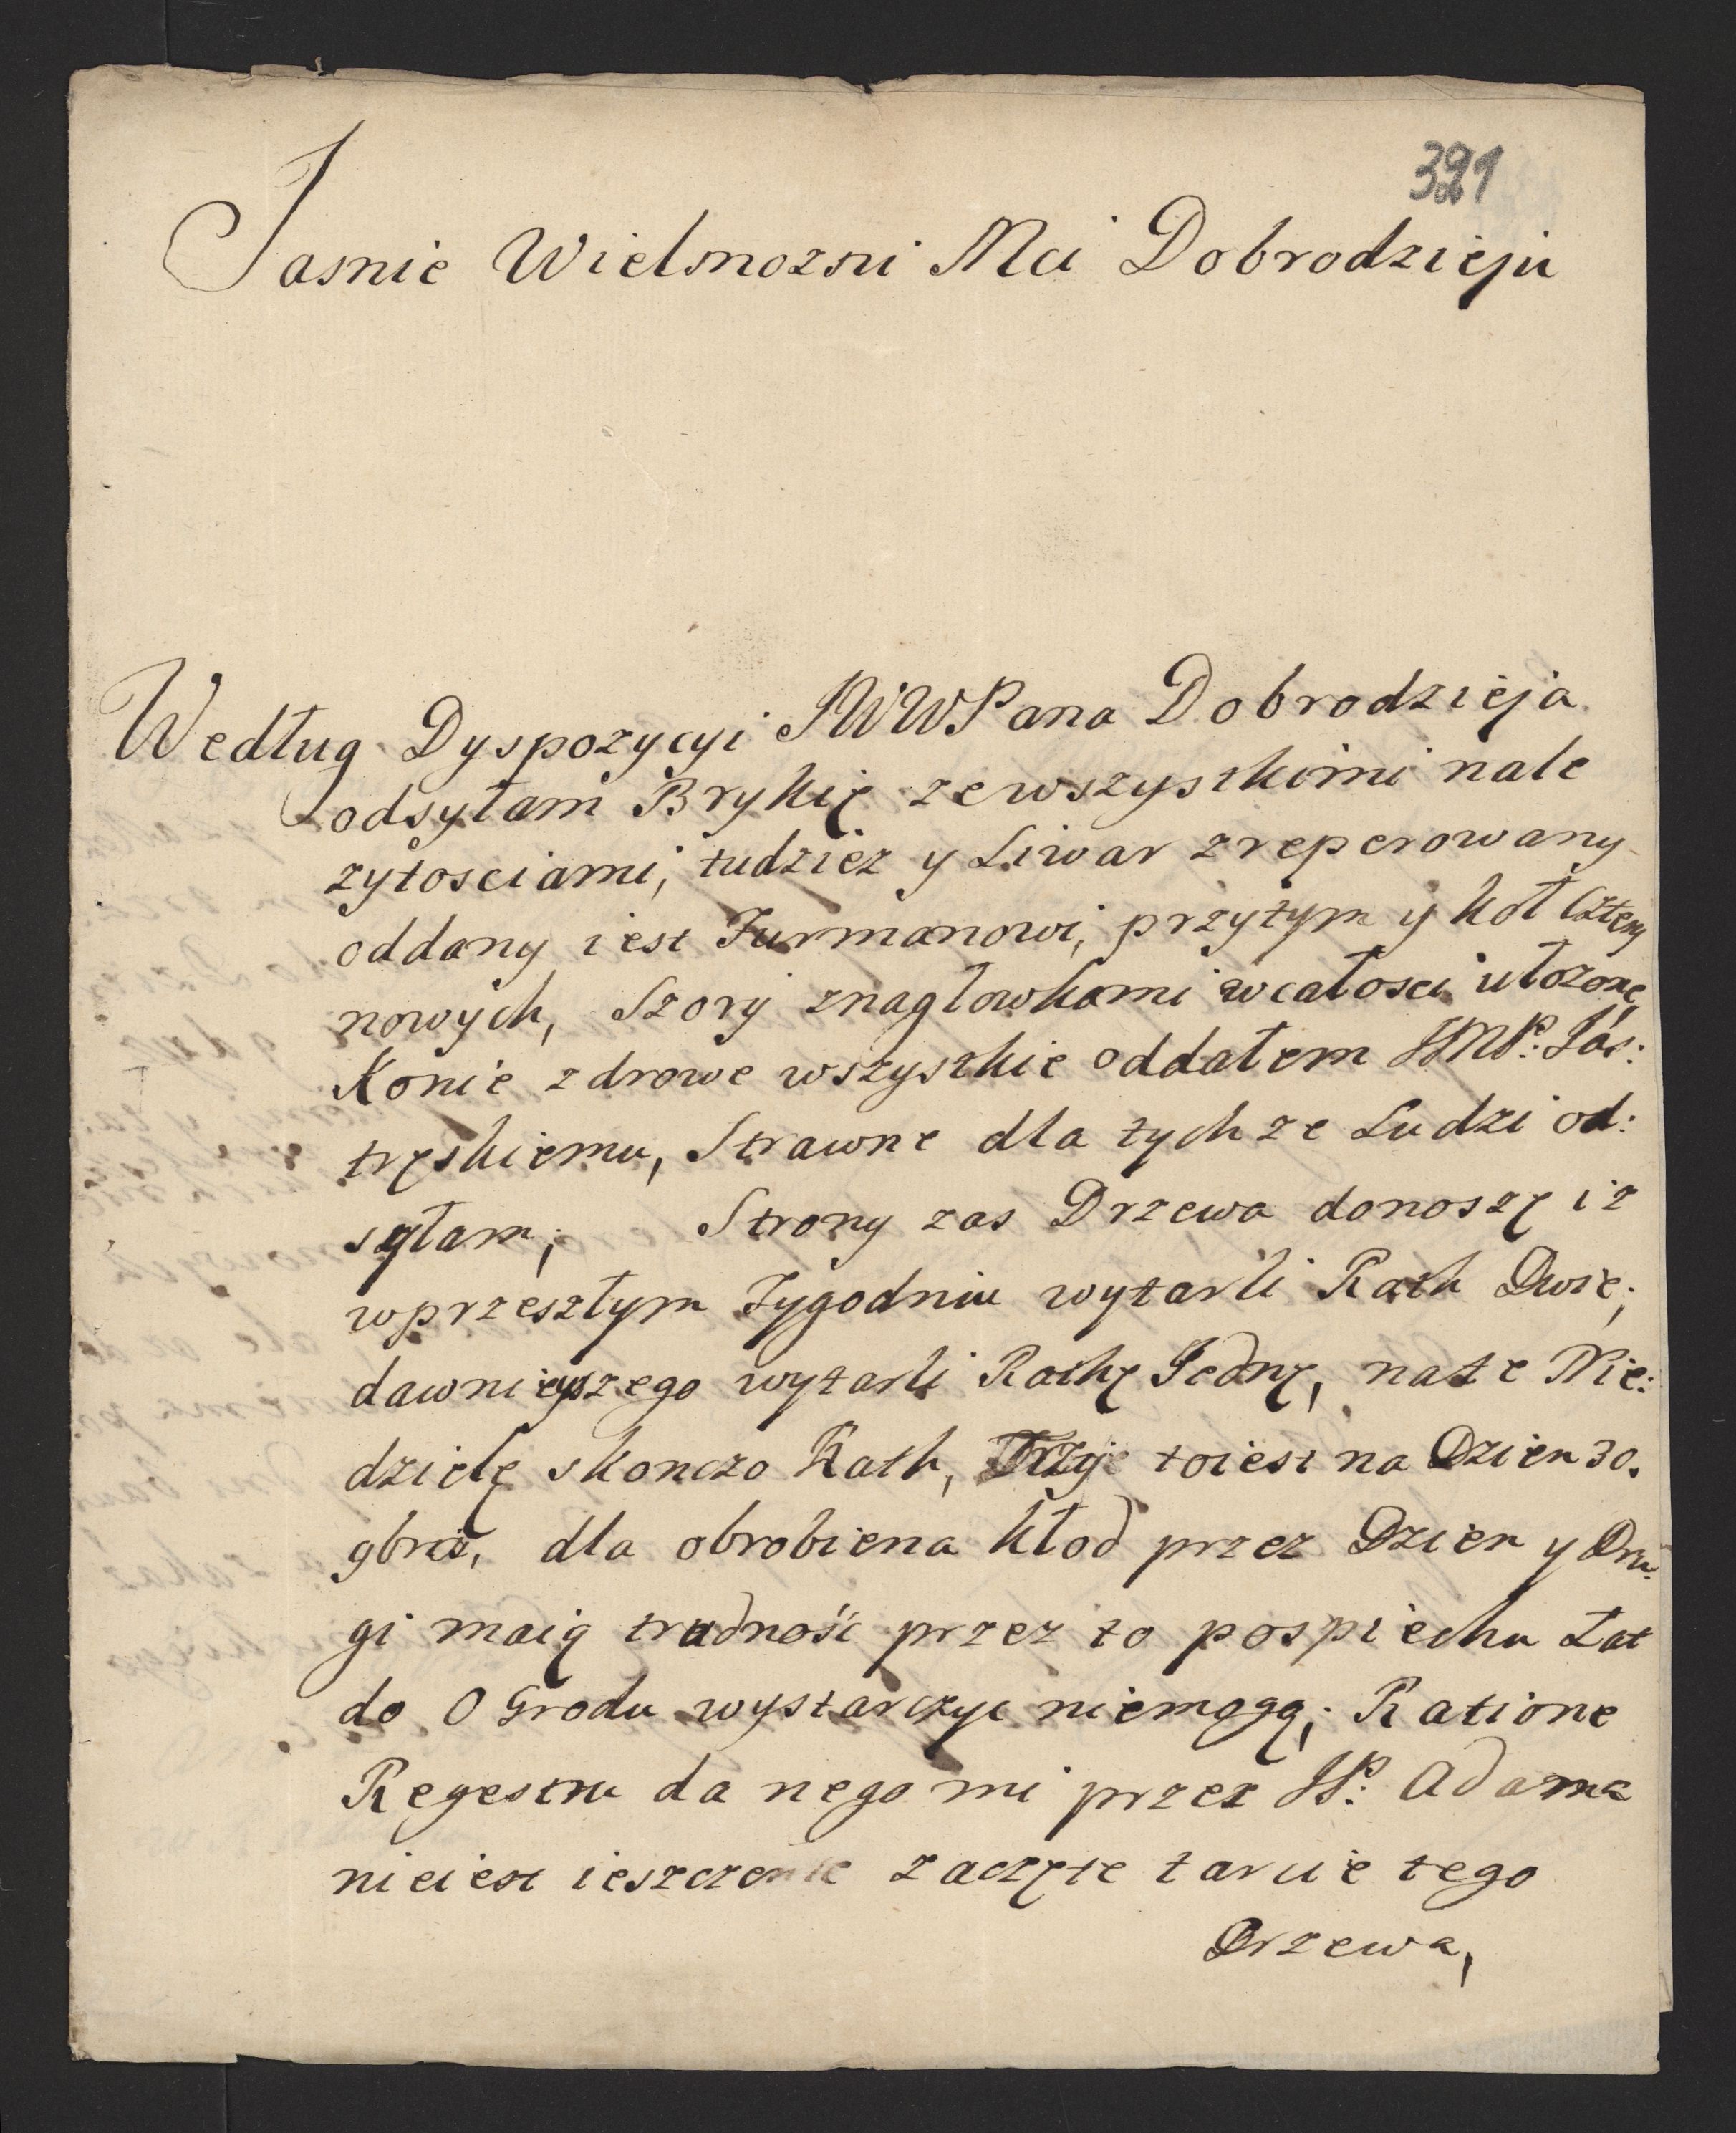 391
Jasnie Wielmozni Mci Dobrodzieju
Według Dyspozycyi JWWPana Dobrodzieja
odsyłam Brykię zewszystkimi nale
zytosciami, tudziez y Liwar zreperowany
oddany iest Furmanowi, przytym y koł Cztery
nowych, Szory znagłowkami wcałosci ułozone
Konie zdrowe wszystkie oddałem JMP: Jas:
tręskiemu, Strawne dla tychze Ludzi od:
syłam; Strony zas Drzewa donoszę iz
wprzeszłym Tygodniu wytarli Rath Dwie;
dawnieyszego wytarli Rathę Jednę, natę Nie:
dzielę skonczo Rath, Trzy toiest na Dzien 30.
gbra, dla obrobiena kłod przez Dzien y Dru:
gi maią trudność przez to pospiechu Łat
do OGrodu wystarczyc niemogą; Ratione
Regestru da nego mi przez JP: Adama
nieiest ieszcze zaczęte tarcie tego
Drzewa,